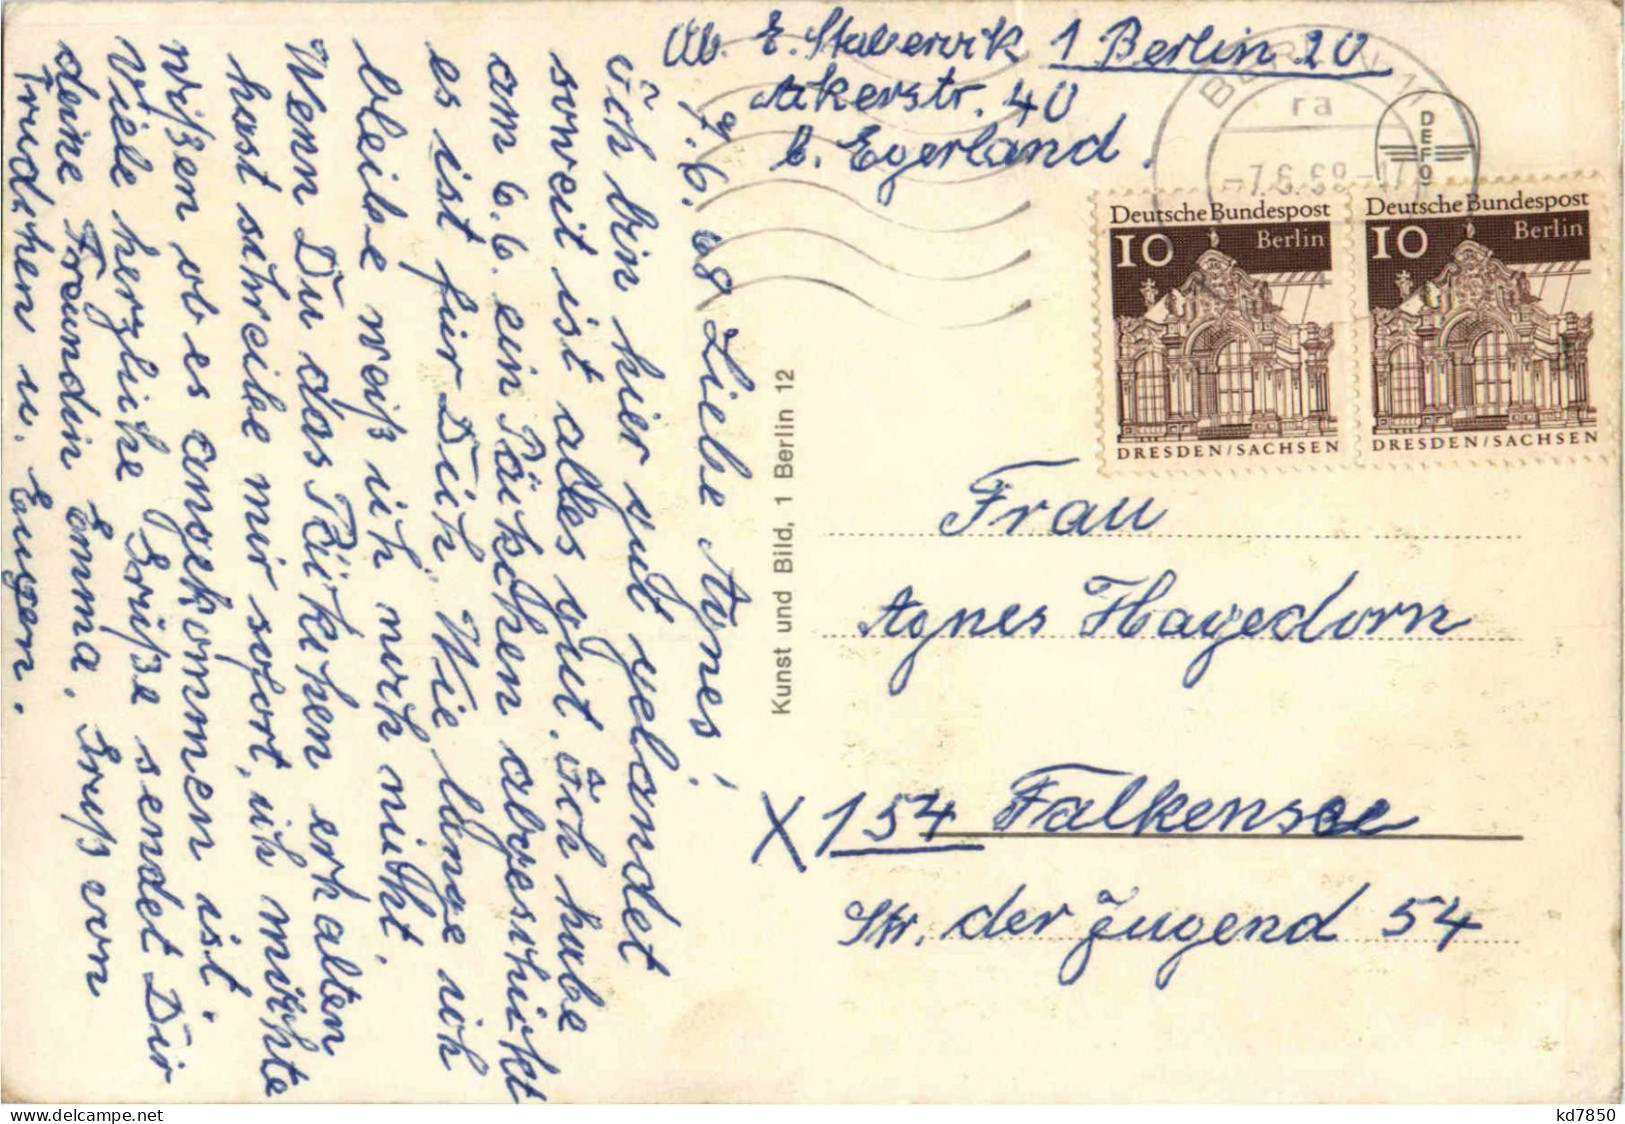 Ab. E. Stabervik 1 Berlin 20
Akerstr. 40
b. Egerland.
BERLIN 11
ra
-7.6.68-17
DEFO
Deutsche Bundespost
10 Berlin
DRESDEN/SACHSEN
Deutsche Bundespost
10 Berlin
DRESDEN/SACHSEN
7.6.68 Liebe Agnes!
ich bin hier gut gelandet
soweit ist alles gut. ich habe
am 6.6. ein Päckchen abgeschickt
es ist für Dich. Wie lange ich
bleibe weiß ich noch nicht.
Wenn Du das Päckchen erhalten
hast schreibe mir sofort, ich möchte
wißen ob es angekommen ist.
Viele herzliche Grüße sendet Dir
deine Freundin Emma. Gruß von
Trudchen u. Eugen.
Kunst und Bild, 1 Berlin 12
Frau
Agnes Hagedorn
X 154 Falkensee
Str. der Jugend 54
www.delcampe.net
kd7850